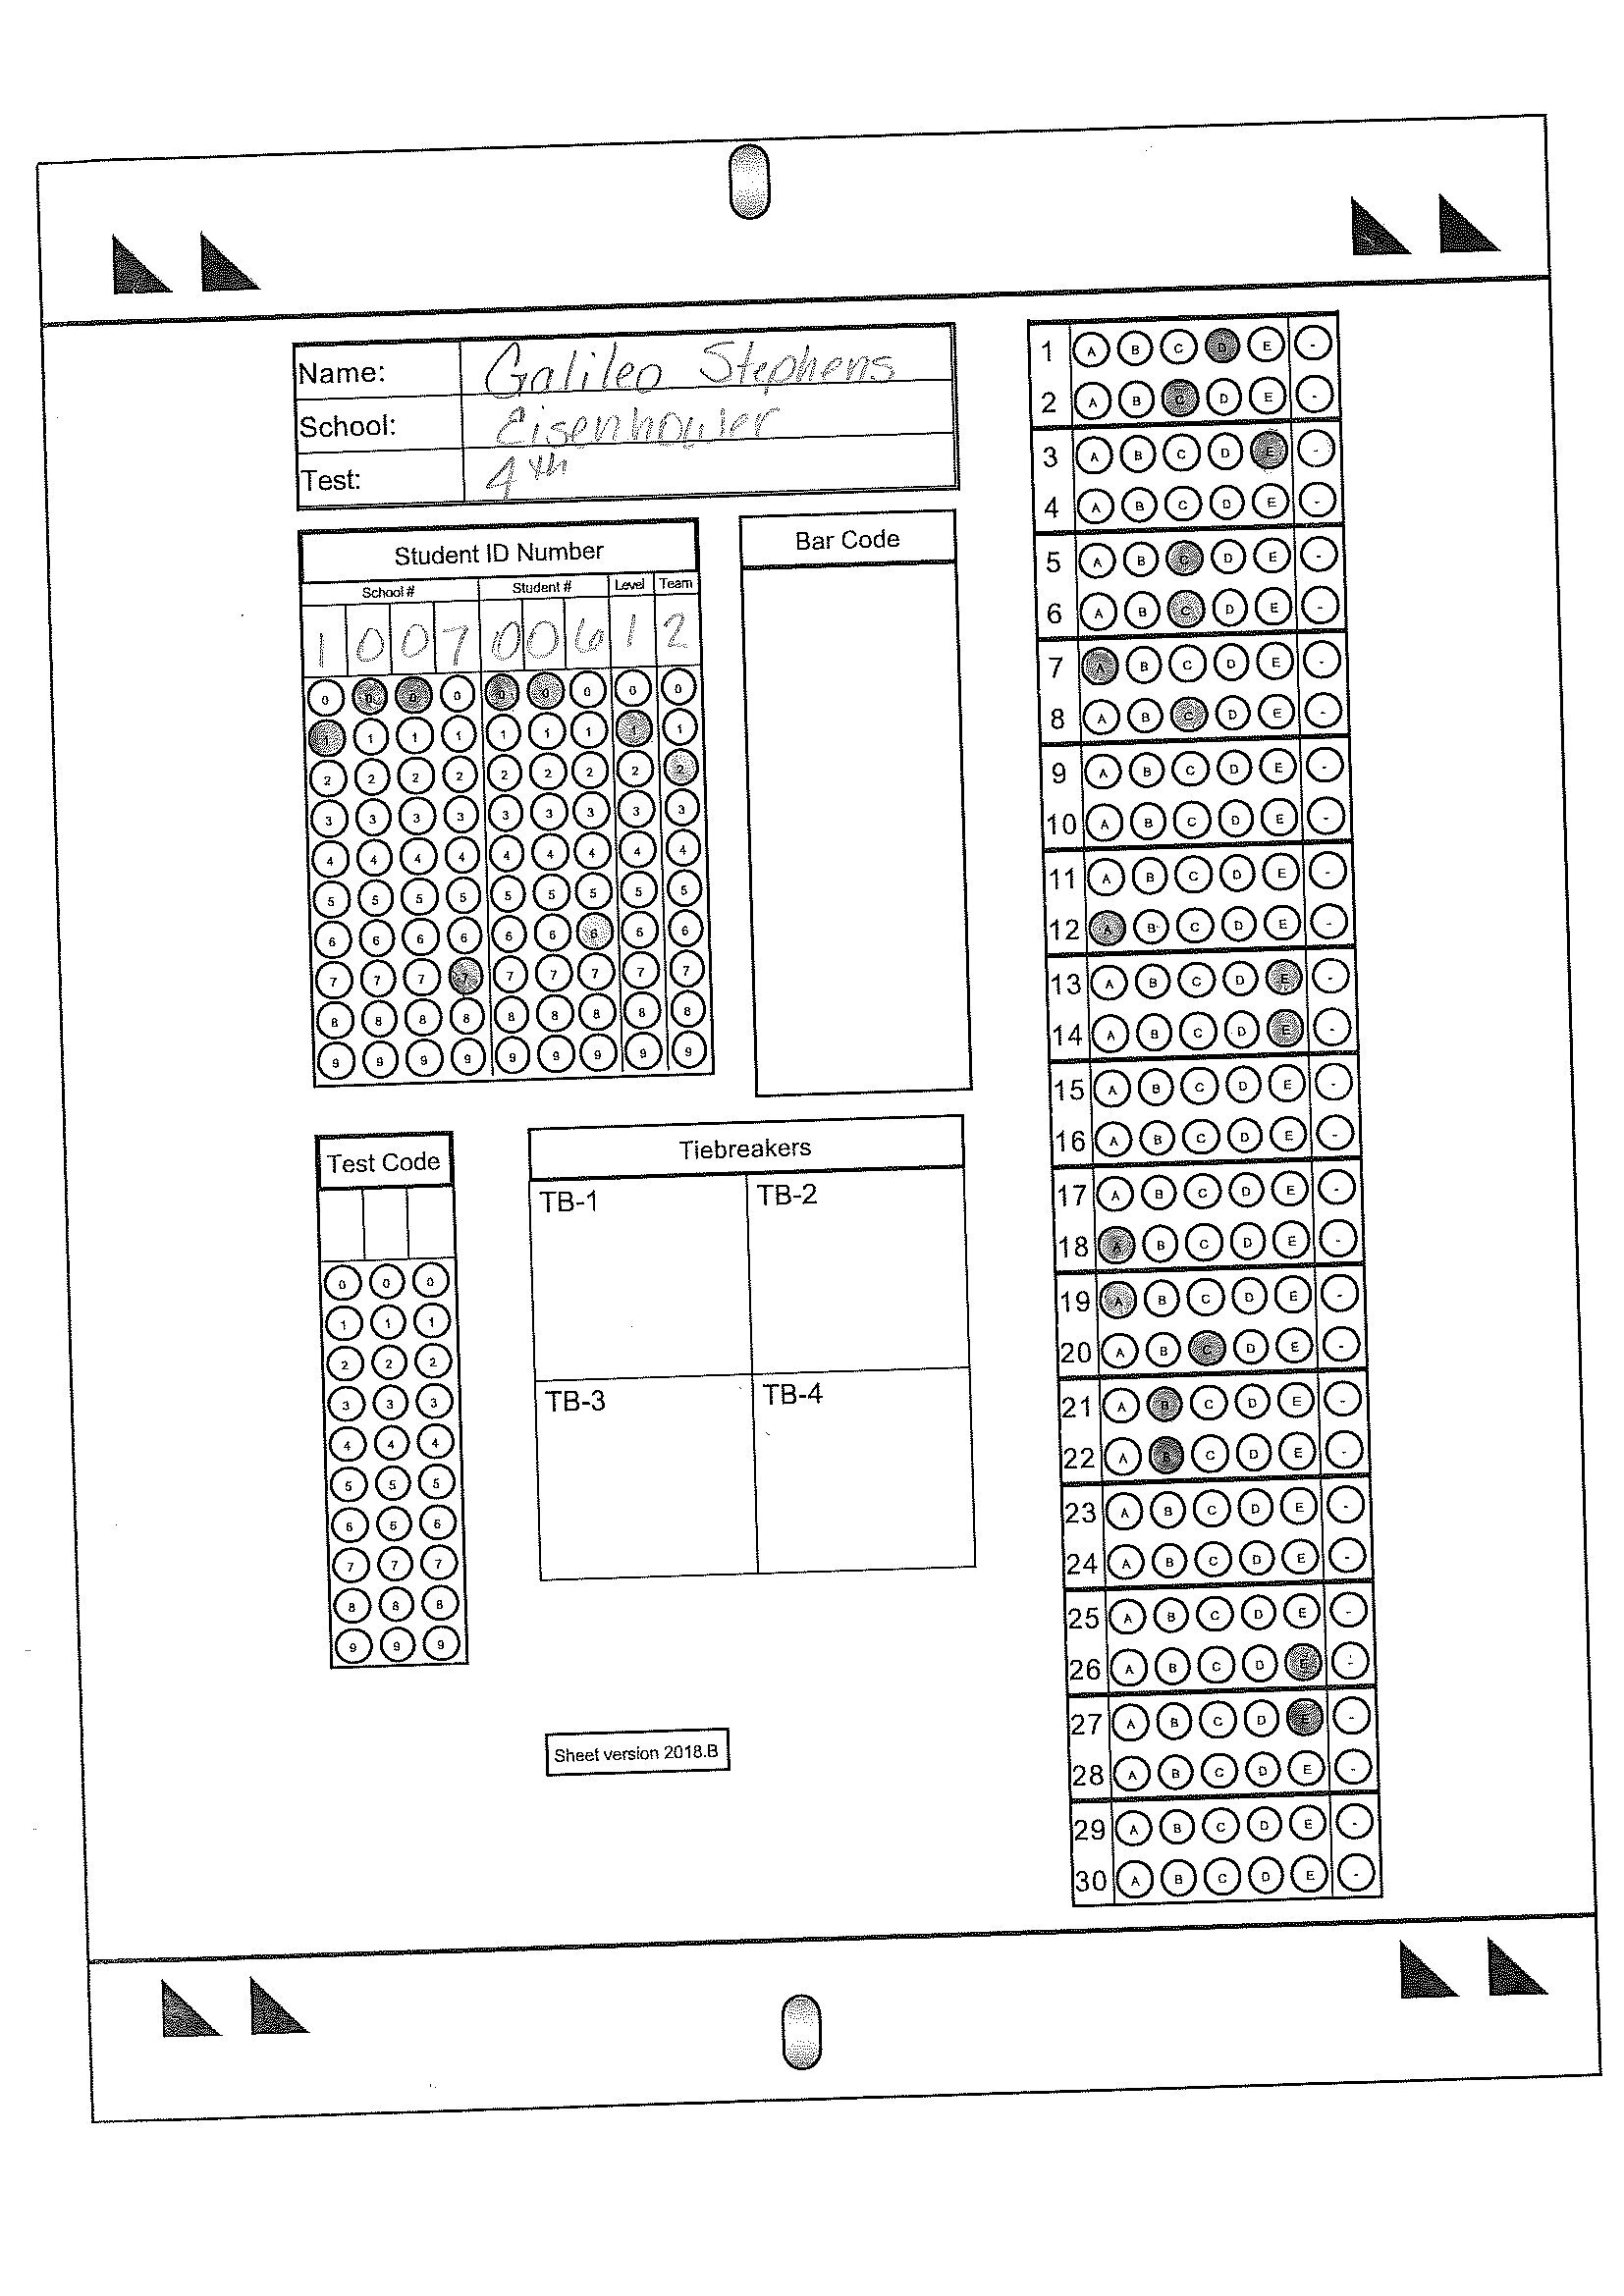 Name: Galileo Stephens
School: Eisenhower
Test: 4th
Student ID Number
School # Student # Level Team
1 0 0 7 0 0 6 1 2
0 0 0 0 0 0 0 0 0
1 1 1 1 1 1 1 1 1
2 2 2 2 2 2 2 2 2
3 3 3 3 3 3 3 3 3
4 4 4 4 4 4 4 4 4
5 5 5 5 5 5 5 5 5
6 6 6 6 6 6 6 6 6
7 7 7 7 7 7 7 7 7
8 8 8 8 8 8 8 8 8
9 9 9 9 9 9 9 9 9
Bar Code
Test Code
0 0 0
1 1 1
2 2 2
3 3 3
4 4 4
5 5 5
6 6 6
7 7 7
8 8 8
9 9 9
Tiebreakers
TB-1 TB-2
TB-3 TB-4
Sheet version 2018.B
1 A B C D E -
2 A B C D E -
3 A B C D E -
4 A B C D E -
5 A B C D E -
6 A B C D E -
7 A B C D E -
8 A B C D E -
9 A B C D E -
10 A B C D E -
11 A B C D E -
12 A B C D E -
13 A B C D E -
14 A B C D E -
15 A B C D E -
16 A B C D E -
17 A B C D E -
18 A B C D E -
19 A B C D E -
20 A B C D E -
21 A B C D E -
22 A B C D E -
23 A B C D E -
24 A B C D E -
25 A B C D E -
26 A B C D E -
27 A B C D E -
28 A B C D E -
29 A B C D E -
30 A B C D E -